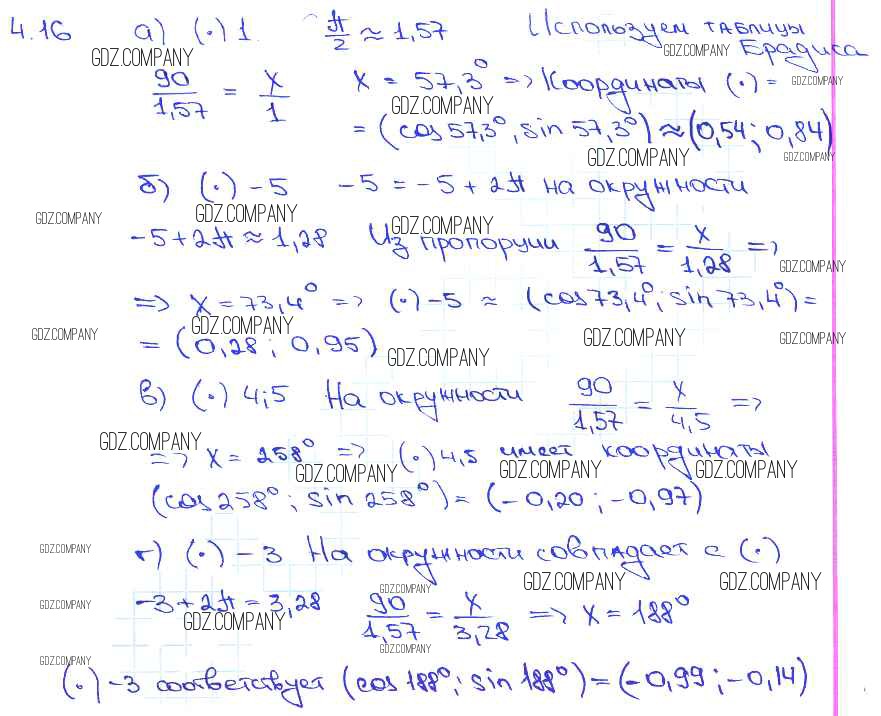 4.16 а) (·) 1. π/2 ≈ 1,57 Используем таблицы
GDZ.COMPANY GDZ.COMPANY Брадиса
90/1,57 = x/1 x = 57,3° => Координаты (·) = GDZ.COMPANY
GDZ.COMPANY
= (cos 57,3°, sin 57,3°) ≈ (0,54; 0,84)
GDZ.COMPANY GDZ.COMPANY
б) (·) -5 -5 = -5 + 2π на окружности
GDZ.COMPANY GDZ.COMPANY GDZ.COMPANY
-5 + 2π ≈ 1,28 Из пропорции 90/1,57 = x/1,28 =>
GDZ.COMPANY
=> x = 73,4° => (·) -5 ≈ (cos 73,4°; sin 73,4°) =
GDZ.COMPANY GDZ.COMPANY GDZ.COMPANY GDZ.COMPANY
= (0,28; 0,95)
GDZ.COMPANY
в) (·) 4;5 На окружности 90/1,57 = x/4,5 =>
GDZ.COMPANY
=> x = 258° => (·) 4,5 имеет координаты
GDZ.COMPANY GDZ.COMPANY GDZ.COMPANY
(cos 258°; sin 258°) = (-0,20; -0,97)
GDZ.COMPANY
г) (·) -3 На окружности совпадает с (·)
GDZ.COMPANY GDZ.COMPANY GDZ.COMPANY
-3 + 2π = 3,28 90/1,57 = x/3,28 => x = 188°
GDZ.COMPANY GDZ.COMPANY
GDZ.COMPANY GDZ.COMPANY
(·) -3 соответствует (cos 188°; sin 188°) = (-0,99; -0,14)